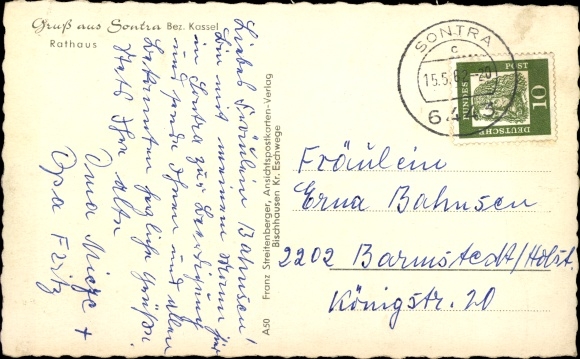 Gruß aus Sontra Bez. Kassel
Rathaus
Liebes Fräulein Bahnsen!
Bin mit meinem Mann für
in Sontra zur
und sende Ihnen und allen
Bekannten Grüße
Stets Ihre alte
Oma Mieze +
Opa Fritz
A50 Franz Streitenberger, Ansichtspostkarten-Verlag
Bischhausen Kr. Eschwege
SONTRA
c
15.5.62-20
DEUTSCHE
BUNDESPOST
10
Fräulein
Erna Bahnsen
2202 Barmstedt/Holst.
Königstr. 20